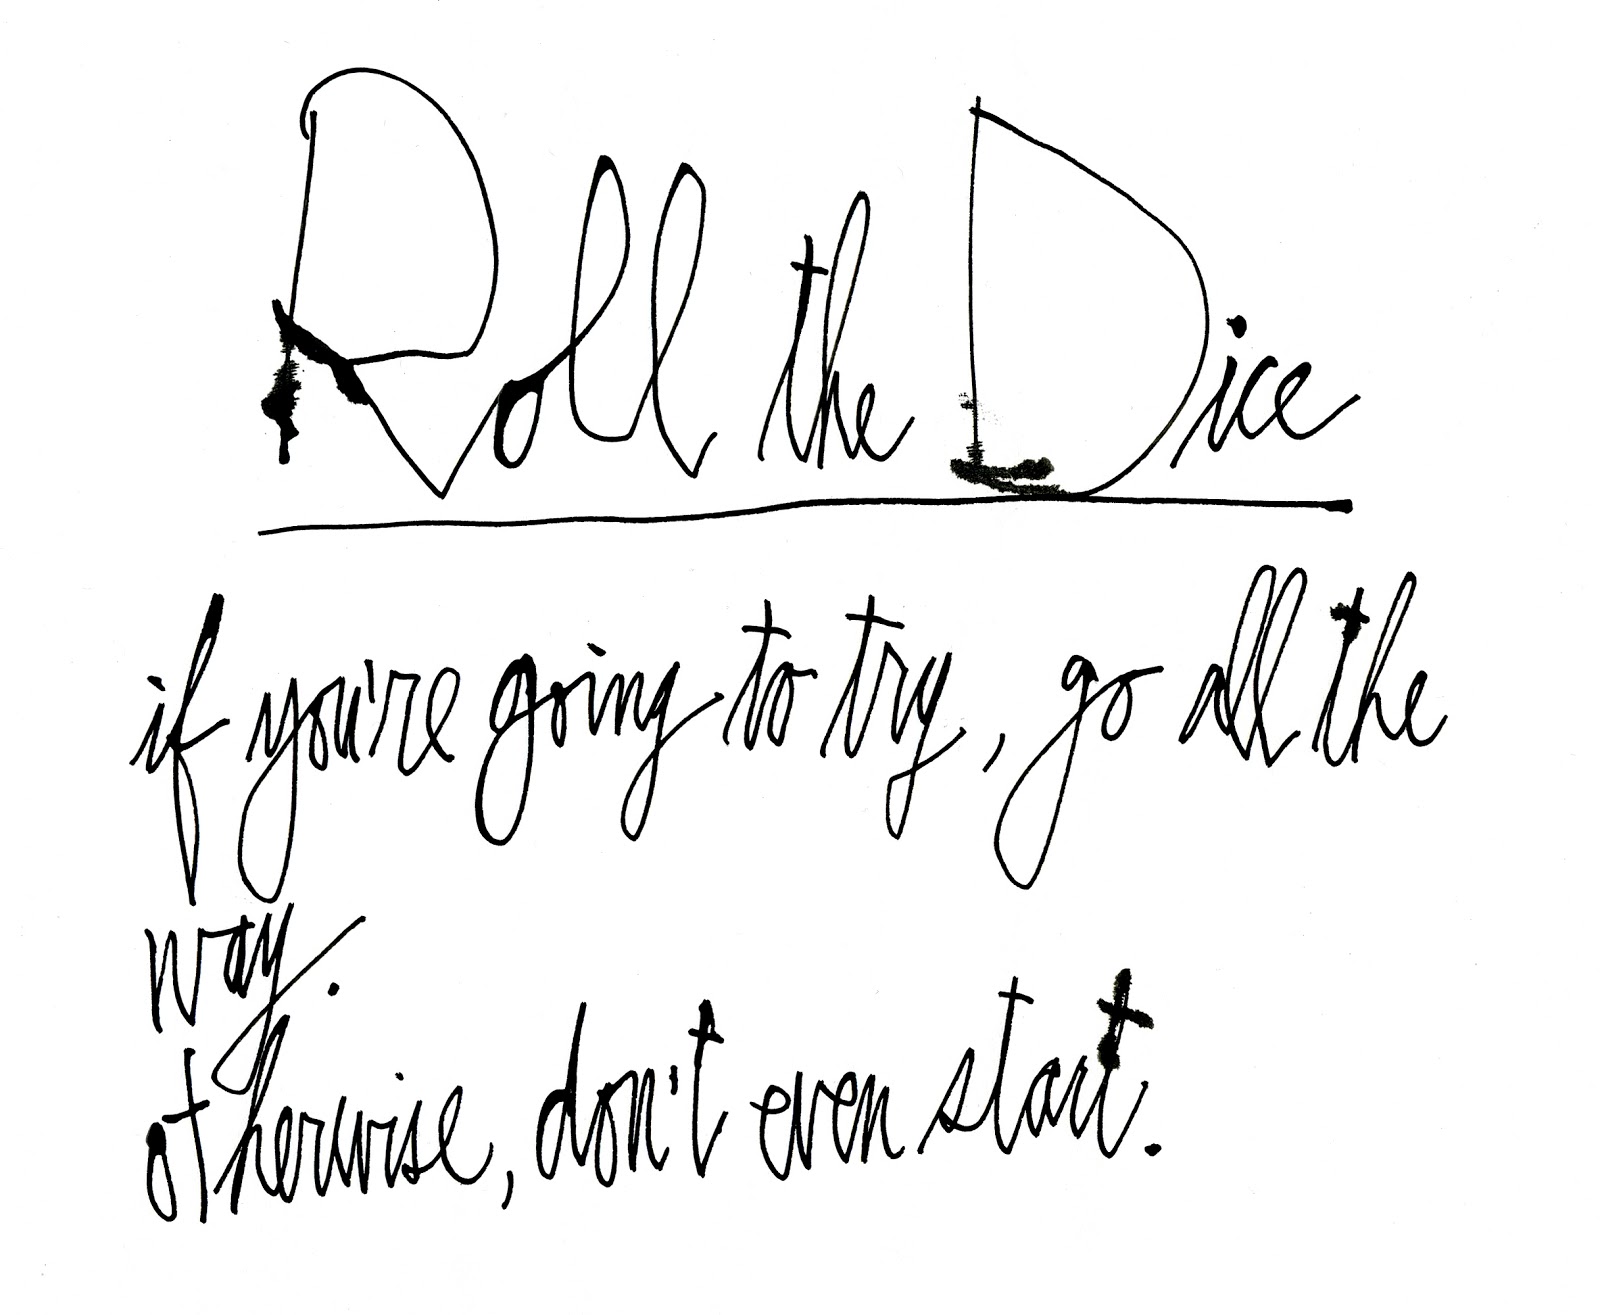 Roll the Dice
if you're going to try, go all the
way.
otherwise, don't even start.